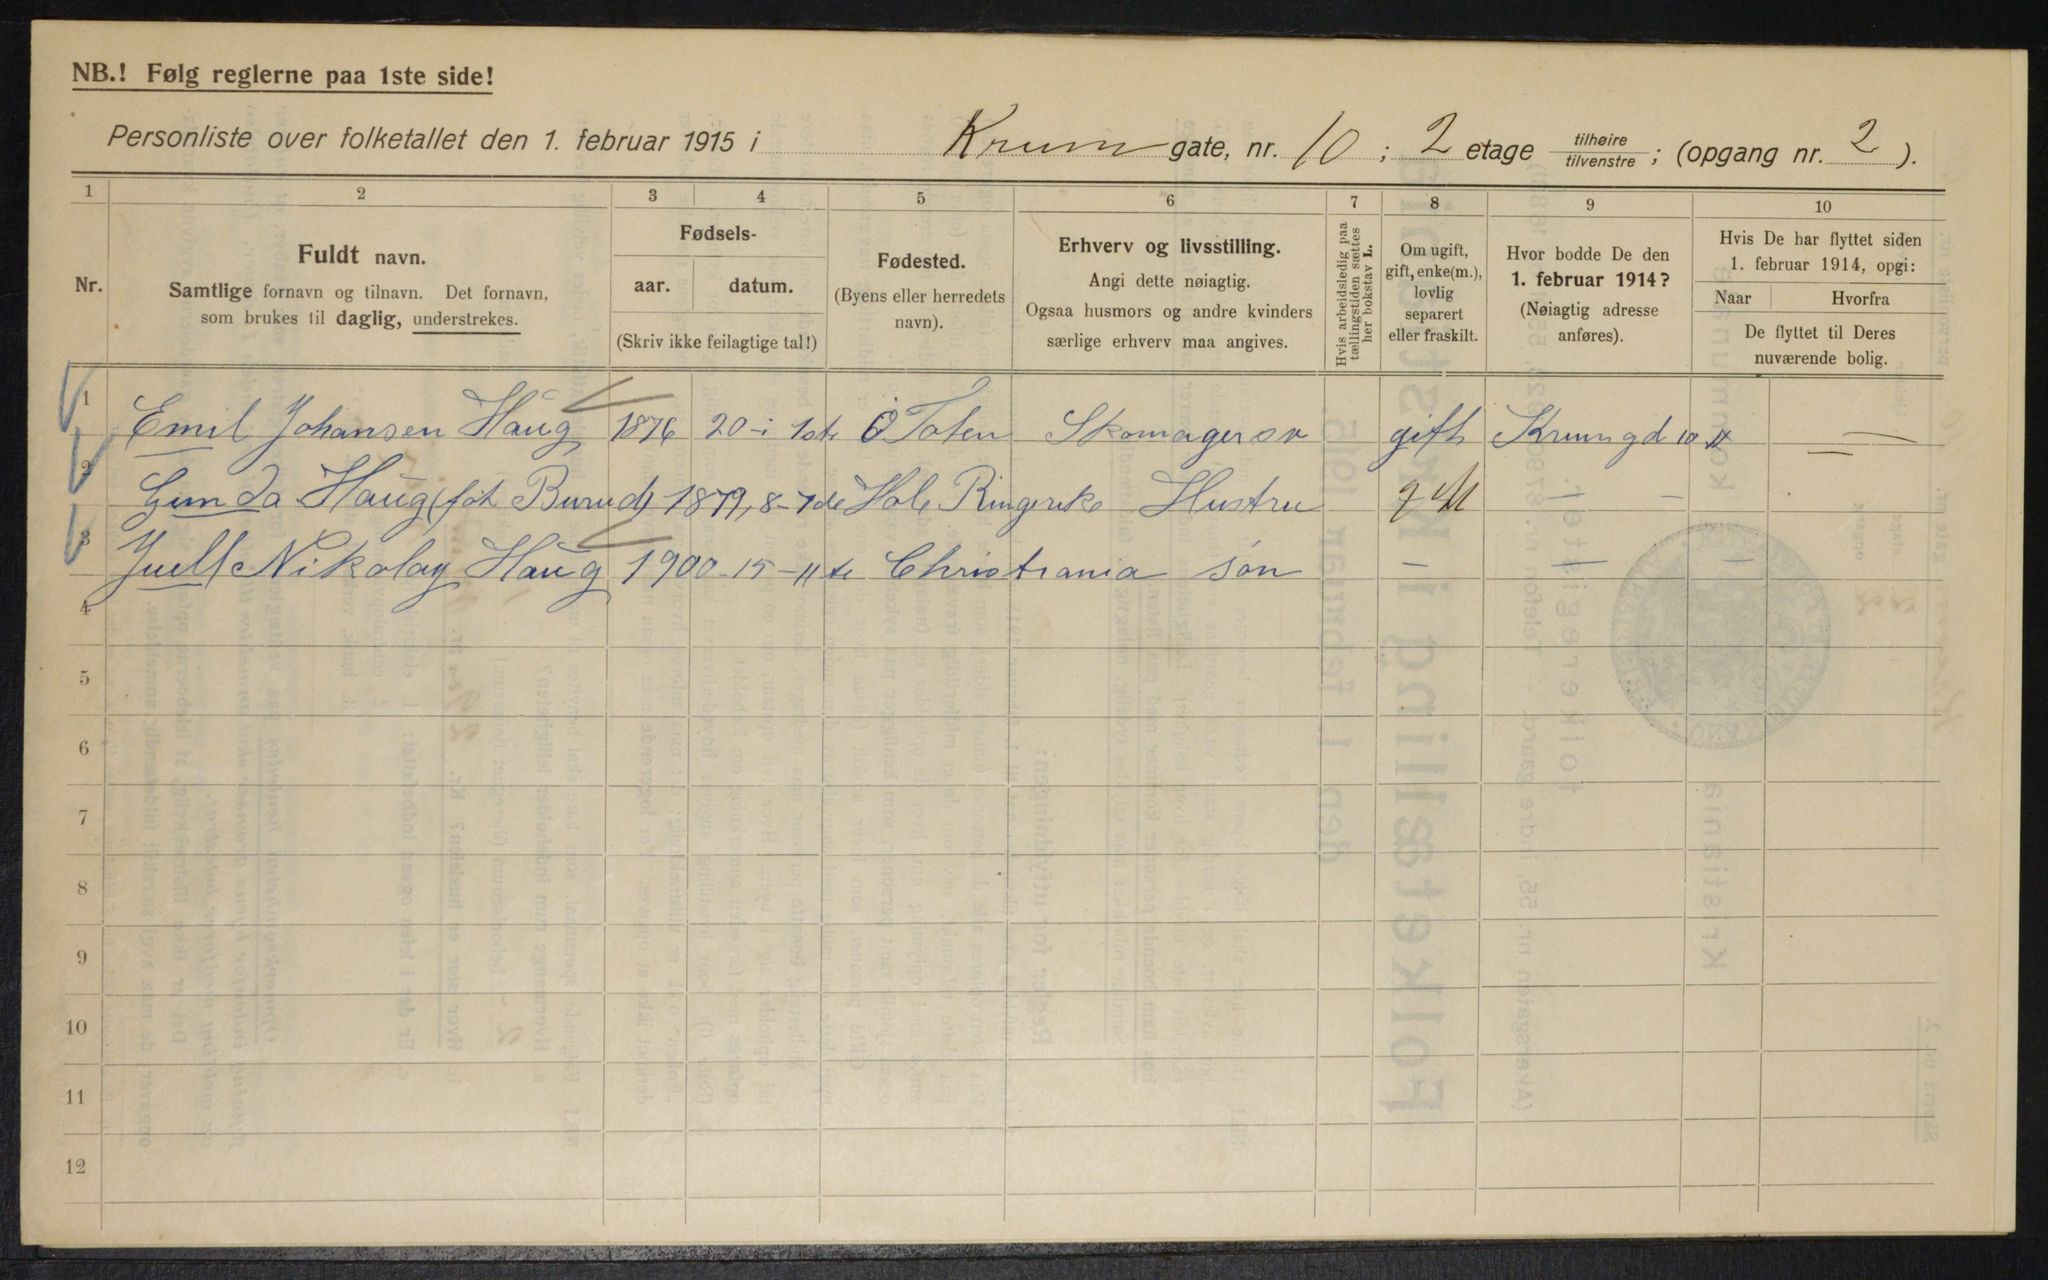 NB.! Følg reglerne paa 1ste side!
Personliste over folketallet den 1. februar 1915 i Krum gate, nr. 10; 2 etage tilhøire/tilvenstre; (opgang nr. 2).
1 2 3 4 5 6 7 8 9 10
Nr.
Fuldt navn.
Samtlige fornavn og tilnavn. Det fornavn,
som brukes til daglig, understrekes.
Fødsels-
aar. datum.
(Skriv ikke feilagtige tal!)
Fødested.
(Byens eller herredets
navn).
Erhverv og livsstilling.
Angi dette nøiagtig.
Ogsaa husmors og andre kvinders
særlige erhverv maa angives.
Hvis arbeidsledig paa
tællingstiden sættes
her bokstav L.
Om ugift,
gift, enke(m.),
lovlig
separert
eller fraskilt.
Hvor bodde De den
1. februar 1914?
(Nøiagtig adresse
anføres).
Hvis De har flyttet siden
1. februar 1914, opgi:
Naar Hvorfra
De flyttet til Deres
nuværende bolig.
1 Emil Johansen Haug 1876 20-1ste Ø Toten Skomagersv gift Krumgd 10 —
2 Gunda Haug (føt Burud) 1879, 8-7de Hole Ringerike Hustru gift — —
3 Juell Nikolay Haug 1900 15-11te Christiania Søn — —
4
5
6
7
8
9
10
11
12